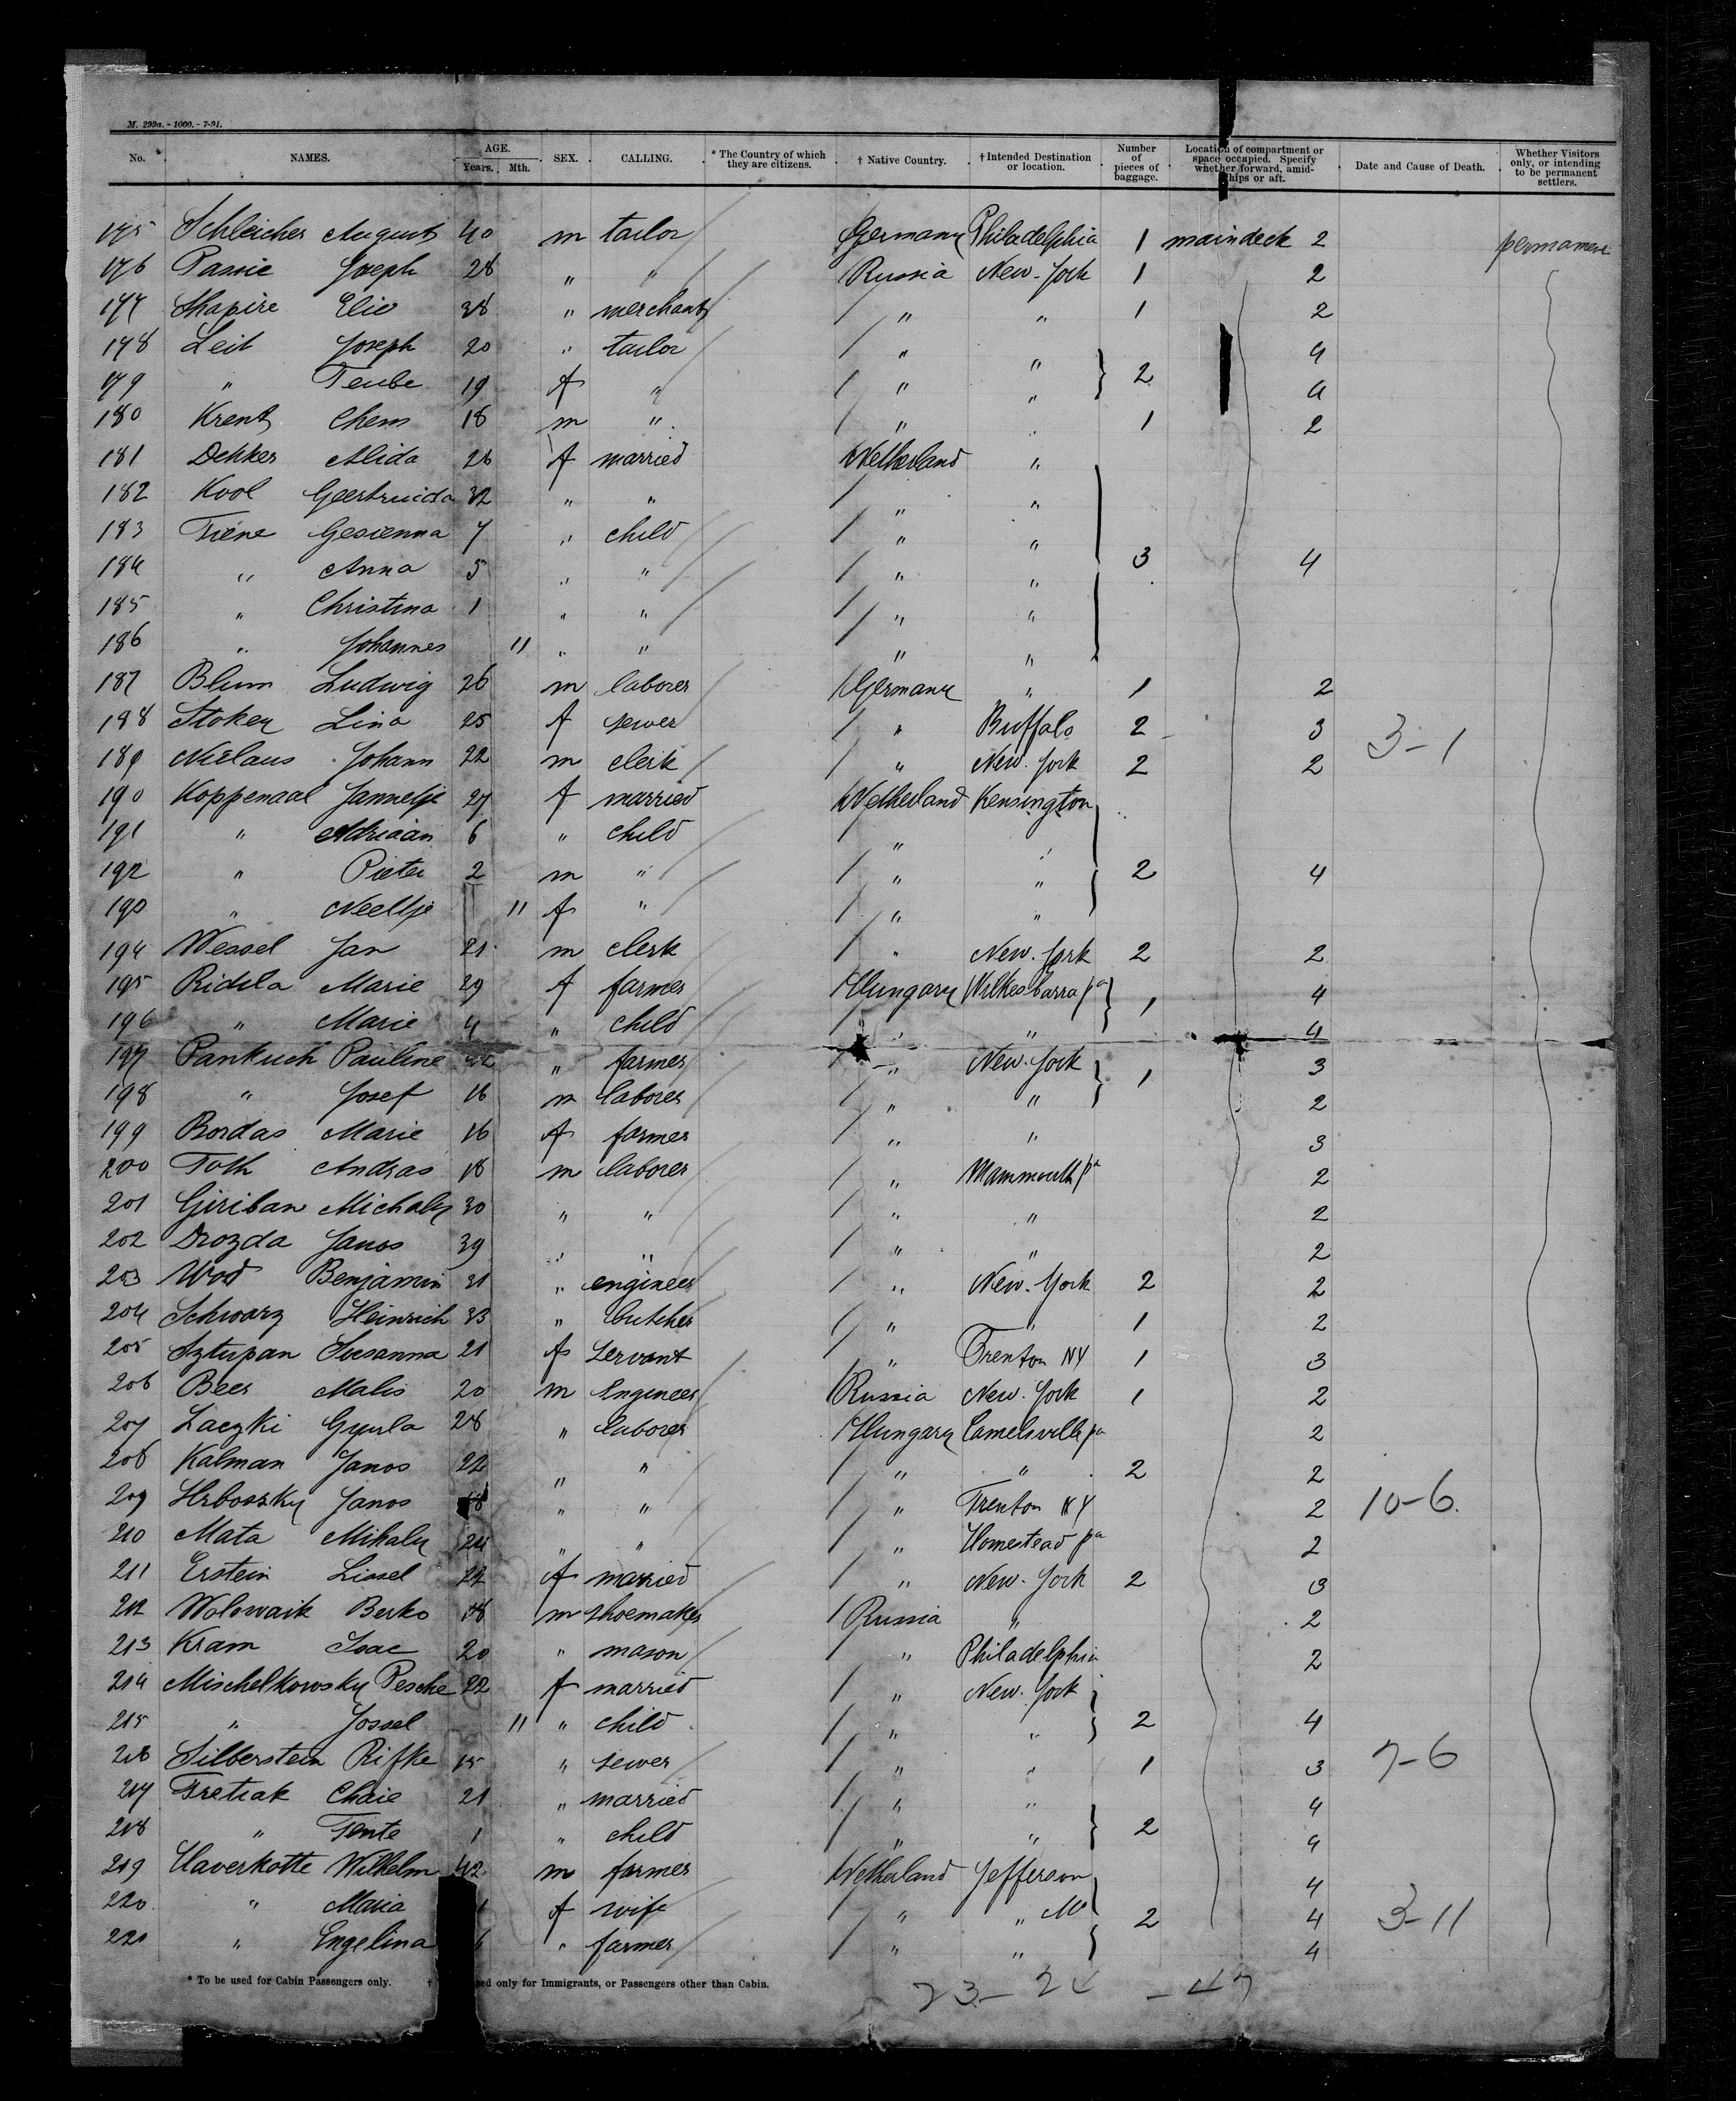 M. 299a. - 1000. - 7-91.
No. NAMES. AGE. Years. Mth. SEX. CALLING. * The Country of which they are citizens. † Native Country. † Intended Destination or location. Number of pieces of baggage. Location of compartment or space occupied. Specify whether forward, amidships or aft. Date and Cause of Death. Whether Visitors only, or intending to be permanent settlers.
175 Schleicher August 40 m tailor Germany Philadelphia 1 maindeck 2 permament
176 Passie Joseph 28 " " Russia New-York 1 2
177 Shapire Elie 38 " merchant " " 1 2
178 Leib Joseph 20 " tailor " " 4
179 " Teube 19 f " " " 2 4
180 Krentz Chem 18 m " " " 1 2
181 Dekker Alida 26 f married Netherland "
182 Kool Geertruida 32 " " " "
183 Tiene Gesienna 7 " child " "
184 " Anna 5 " " " " 3 4
185 " Christina 1 " " " "
186 " Johannes 11 " " " "
187 Blum Ludwig 26 m laborer Germany " 1 2
188 Stoker Lina 25 f sewer " Buffalo 2 3 3-1
189 Nielaus Johann 22 m clerk " New-York 2 2
190 Koppenaal Jannetje 27 f married Netherland Kensington
191 " Adriaan 6 " child " "
192 " Pieter 2 m " " " 2 4
193 " Neeltje 11 f " " "
194 Wessel Jan 21 m clerk " New-York 2 2
195 Ridila Marie 29 f farmer Hungary Wilkesbarra pa 1 4
196 " Marie 4 " child " " 4
197 Pankuch Pauline " farmer " New-York 1 3
198 " Josef 16 m laborer " " 2
199 Bordas Marie 16 f farmer " " 3
200 Toth Andras 18 m laborer " Mammouth pa 2
201 Giriban Michaly 30 " " " " 2
202 Drozda Janos 39 " " " " 2
203 Wod Benjamin 31 " engineer " New-York 2 2
204 Schwarz Heinrich 33 " butcher " " 1 2
205 Sztupan Susanna 21 f servant " Trenton NY 1 3
206 Beer Malis 20 m Engineer Russia New-York 1 2
207 Laczki Gyula 28 " laborer Hungary Camelsville pa 2
208 Kalman Janos 22 " " " " 2 2
209 Hrboszky Janos " " " Trenton NY 2 10-6.
210 Mata Mihaly 24 " " " Homestead pa 2
211 Erstein Lissel 22 f married " New-York 2 3
212 Wolowaik Berko 18 m shoemaker Russia " 2
213 Kram Isac 20 " mason " Philadelphia 2
214 Mischelkowsky Pesche 22 f married " New-York
215 " Jossel 11 " child " " 2 4
216 Silberstein Rifke 15 " sewer " " 1 3 7-6
217 Tretiak Chaie 21 " married " " 4
218 " Tente 1 " child " " 2 4
219 Haverkotte Wilhelm 42 m farmer Netherland Jefferson 4
220 " Maria f wife " " Mo 2 4 3-11
221 " Engelina " farmer " " 4
* To be used for Cabin Passengers only. † sed only for Immigrants, or Passengers other than Cabin.
23- 24 - 47